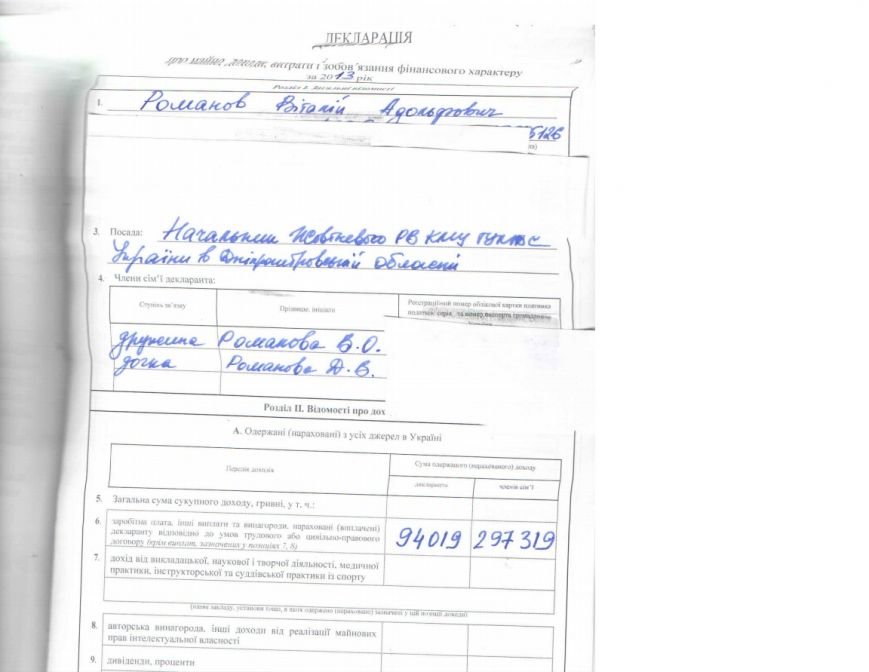 ДЕКЛАРАЦІЯ
про майно, доходи, витрати і зобов'язання фінансового характеру
за 2013 рік
Розділ I. Загальні відомості
1. Романов Віталій Адольфович
6126
3. Посада: Начальник Жовтневого РВ КМУ ГУ
України в Дніпропетровській області
4. Члени сім'ї декларанта:
Ступінь зв'язку
Прізвище, ініціали
Реєстраційний номер облікової картки платника
податків/ серія та номер паспорта громадянина
дружина Романова В.О.
дочка Романова Д.В.
Розділ II. Відомості про дох
А. Одержані (нараховані) з усіх джерел в Україні
Перелік доходів
Сума одержаного (нарахованого) доходу
декларанта
членів сім'ї
5. Загальна сума сукупного доходу, гривні, у т. ч.:
6. заробітна плата, інші виплати та винагороди, нараховані (виплачені)
декларанту відповідно до умов трудового або цивільно-правового
договору (крім виплат, зазначених у позиціях 7, 8)
94019 297319
7. дохід від викладацької, наукової і творчої діяльності, медичної
практики, інструкторської та суддівської практики із спорту
(назва закладу, установи тощо, в яких одержано (нараховано) зазначені у цій позиції доходи)
8. авторська винагорода, інші доходи від реалізації майнових
прав інтелектуальної власності
9. дивіденди, проценти